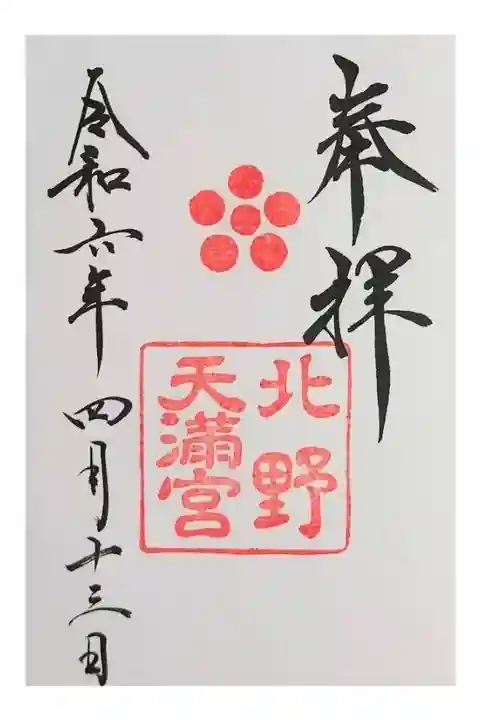 奉拝
北野
天満宮
令和六年 四月十三日